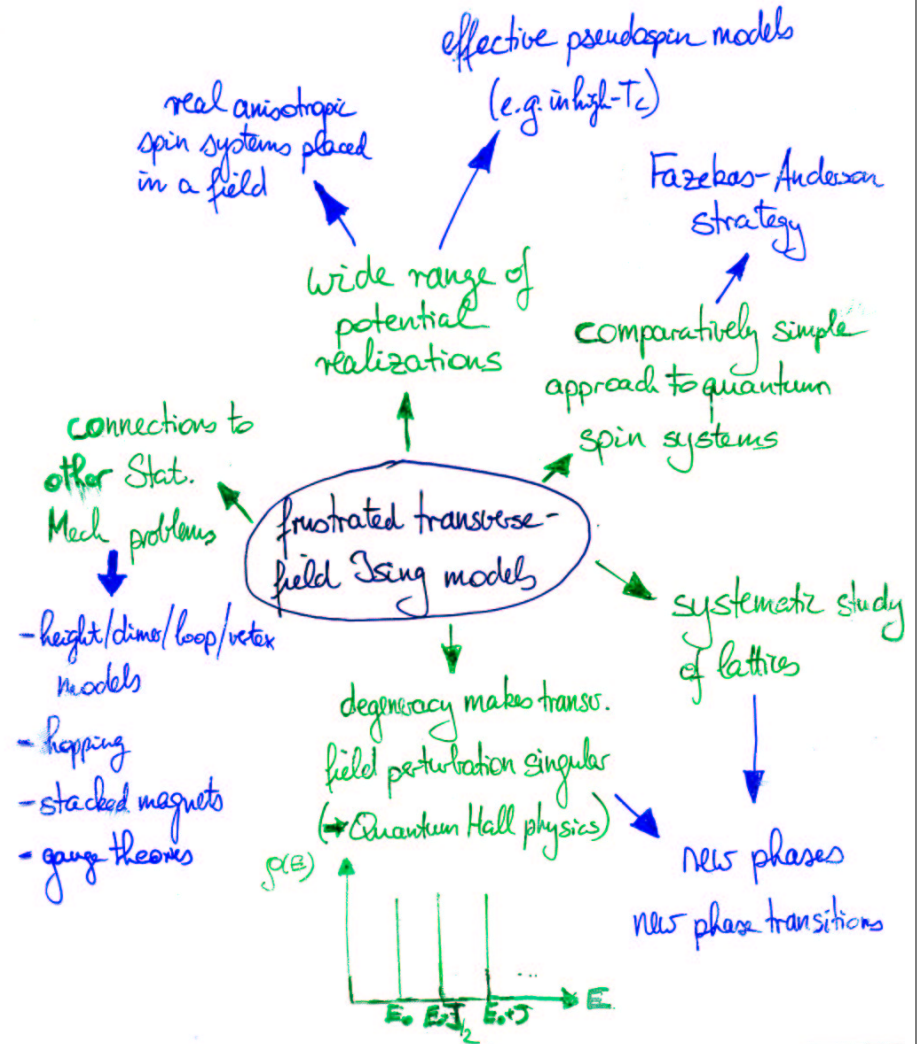 effective pseudospin models
(e.g. in high-Tc)
real anisotropic
spin systems placed
in a field
Fazekas-Anderson
strategy
wide range of
potential
realizations
comparatively simple
approach to quantum
spin systems
connections to
other Stat.
Mech problems
frustrated transverse-
field Ising models
- height/dimer/loop/vertex
models
- hopping
- stacked magnets
- gauge theories
systematic study
of lattices
degeneracy makes transv.
field perturbation singular
(→ Quantum Hall physics)
new phases
new phase transitions
ρ(E)
...
E
E₀ E₀+J/2 E₀+J